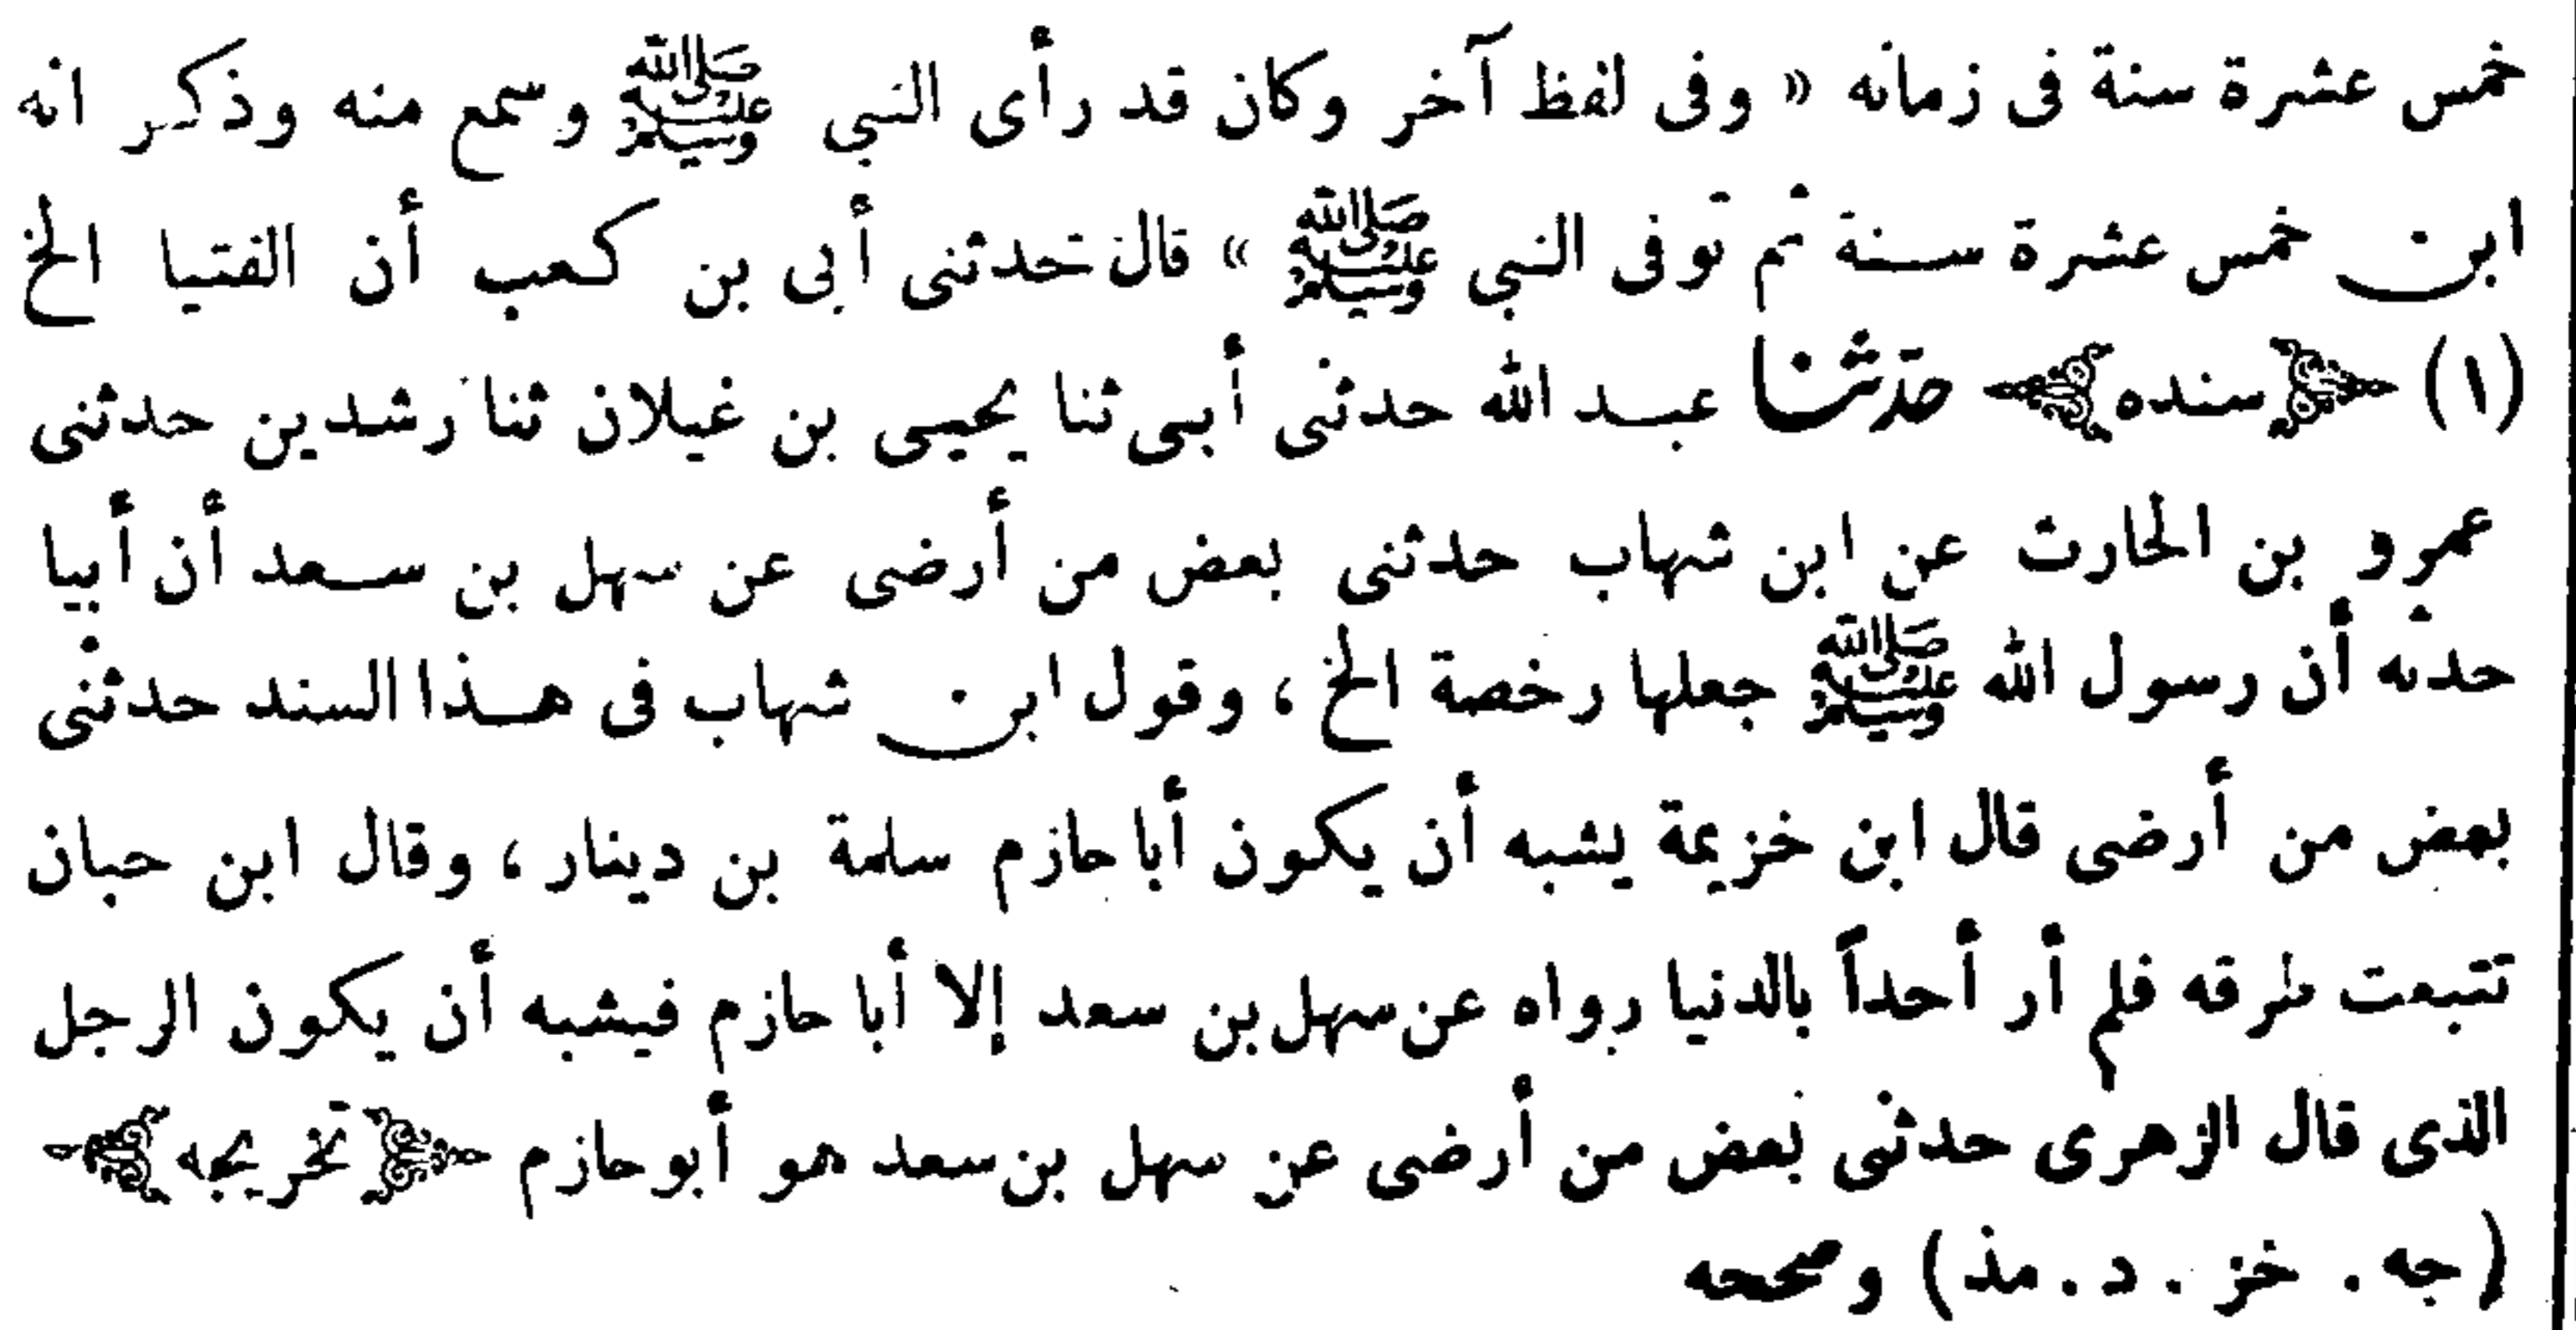 خمس عشرة سنة فى زمانه « وفى لفظ آخر وكان قد رأى النبي ﷺ وسمع منه وذكر انه
ابن خمس عشرة سنة ثم توفى النبي ﷺ » قال حدثنى أبى بن كعب أن الفتيا الخ
(١) ﴿سنده﴾ حدّثنا عبد الله حدثنى أبى ثنا يحيى بن غيلان ثنا رشدين حدثنى
عمرو بن الحارث عن ابن شهاب حدثنى بعض من أرضى عن سهل بن سعد أن أبيا
حدثه أن رسول الله ﷺ جعلها رخصة الخ ، وقول ابن شهاب فى هذا السند حدثنى
بعض من أرضى قال ابن خزيمة يشبه أن يكون أبا حازم سلمة بن دينار ، وقال ابن حبان
تتبعت طرقه فلم أر أحداً بالدنيا رواه عن سهل بن سعد إلا أبا حازم فيشبه أن يكون الرجل
الذى قال الزهرى حدثنى بعض من أرضى عن سهل بن سعد هو أبو حازم ﴿تخريجه﴾
(جه . خز . د . مذ) وصححه